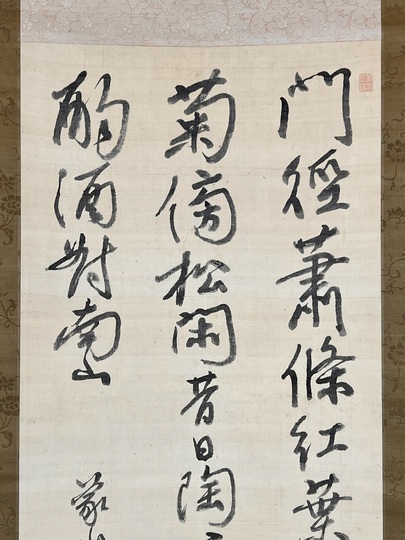 門徑蕭條紅葉
菊傍松閑昔日陶
酌酒對南山